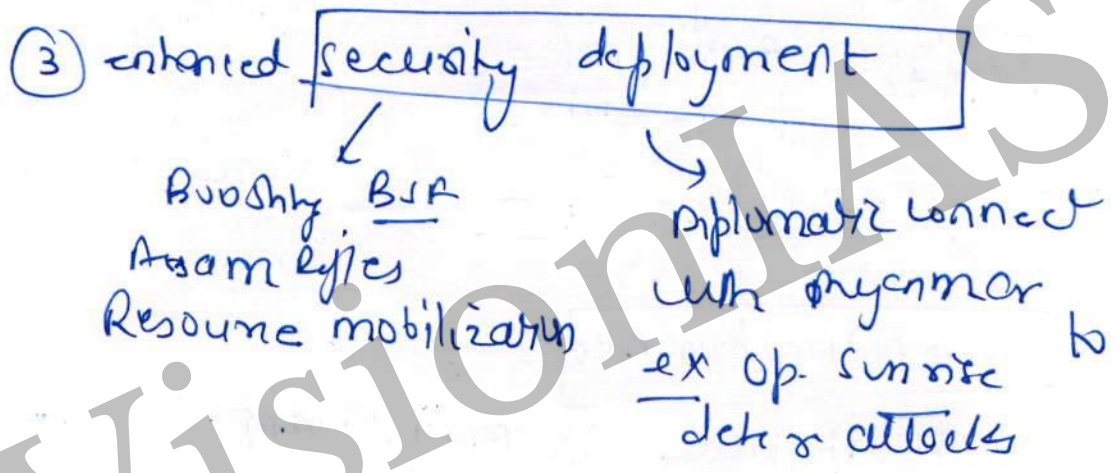 ③ enhanced security deployment
Boosting BSF
Assam Rifles
Resource mobilization
Diplomatic connect
with Myanmar to
ex Op. Sunrise
deter attacks
VisionIAS